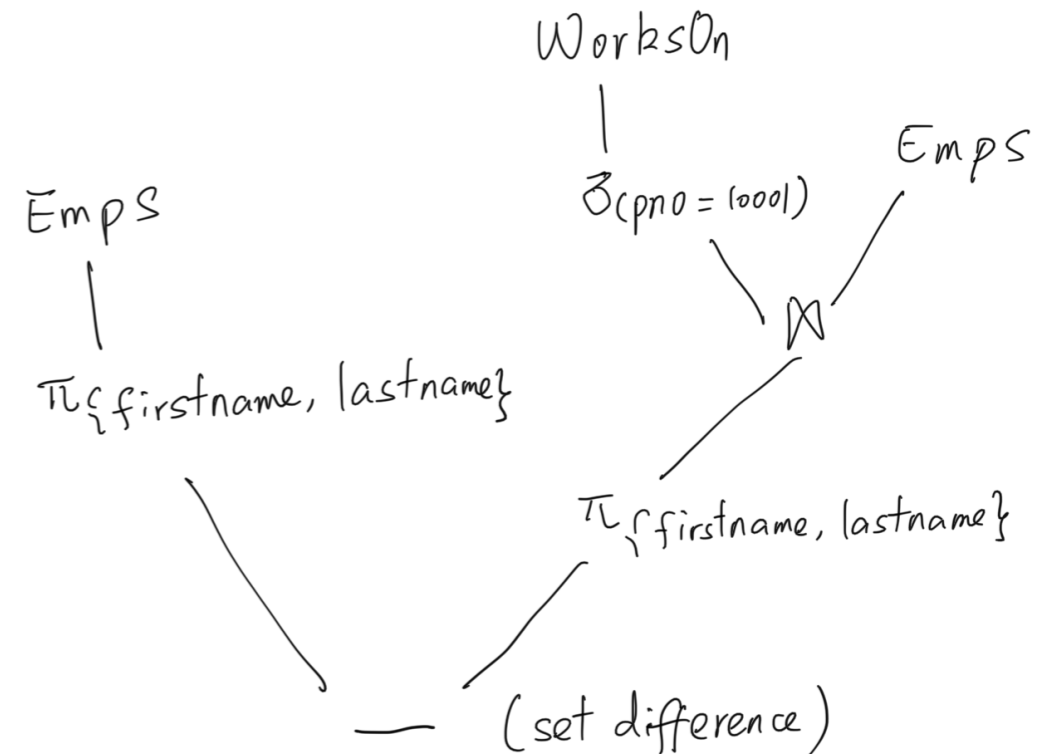 WorksOn
Emps
σ(pno = 10001)
Emps
⋈
π{firstname, lastname}
π{firstname, lastname}
— (set difference)